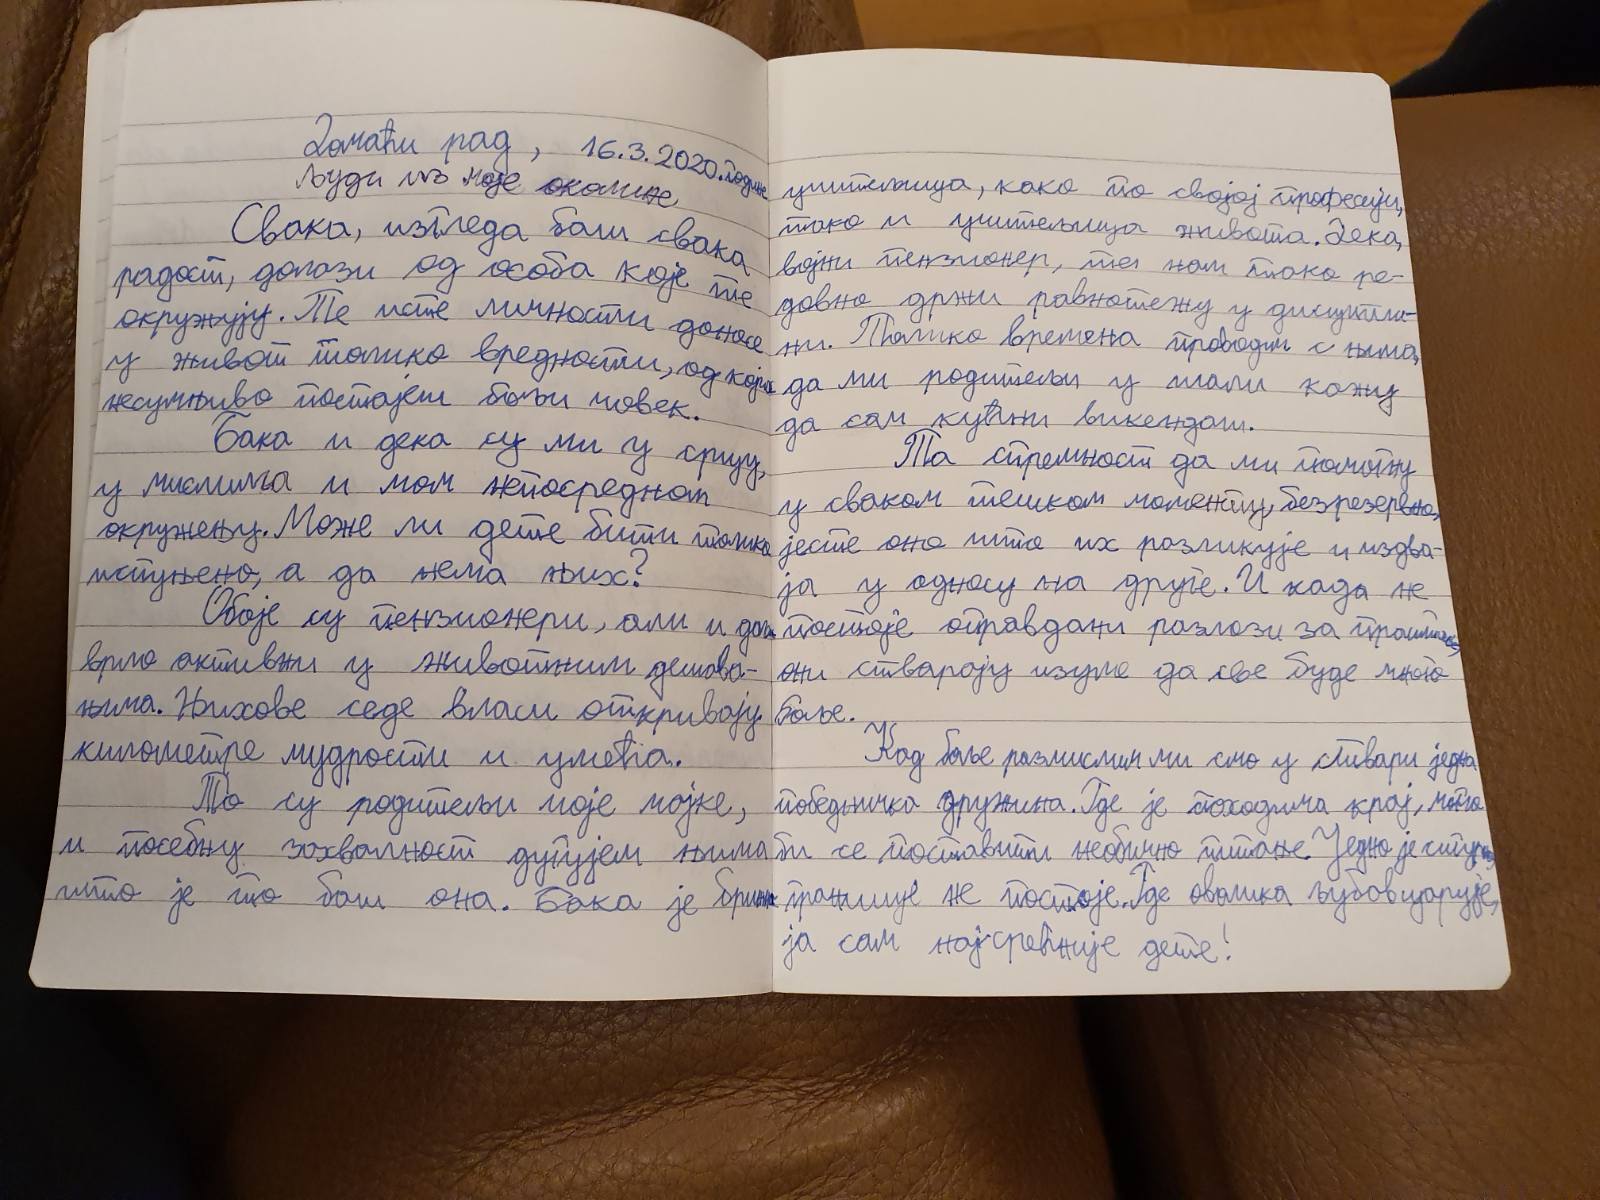 Домаћи рад, 16.3.2020. године
Људи из моје околине
Свака, изгледа баш свака
радост, долази од особа које те
окружују. Те исте личности доносе
у живот толико вредности, од којих
несумњиво постајеш бољи човек.
Бака и дека су ми у срцу,
у мислима и мом непосредном
окружењу. Може ли дете бити толико
испуњено, а да нема њих?
Обоје су пензионери, али и даље
врло активни у животним дешава-
њима. Њихове седе власи откривају
километре мудрости и умећа.
То су родитељи моје мајке,
и посебну захвалност дугујем њима
што је то баш она. Бака је брижна
учитељица, како по својој професији,
тако и учитељица живота. Дека,
војни пензионер, те нам тако ре-
довно држи равнотежу у дисципли-
ни. Толико времена проводим с њима,
да ми родитељи у шали кажу
да сам кућни викендаш.
Та спремност да ми помогну
у сваком тешком моменту, безрезервно,
јесте оно што их разликује и издва-
ја у односу на друге. И када не
постоје оправдани разлози за
они стварају изуме да све буде много
боље.
Кад боље размислим ми смо у ствари једна
победничка дружина. Где је походима крај, могло
би се поставити необично питање. Једно је сигурно
границе не постоје. Где оволика љубав царује,
ја сам најсрећније дете!